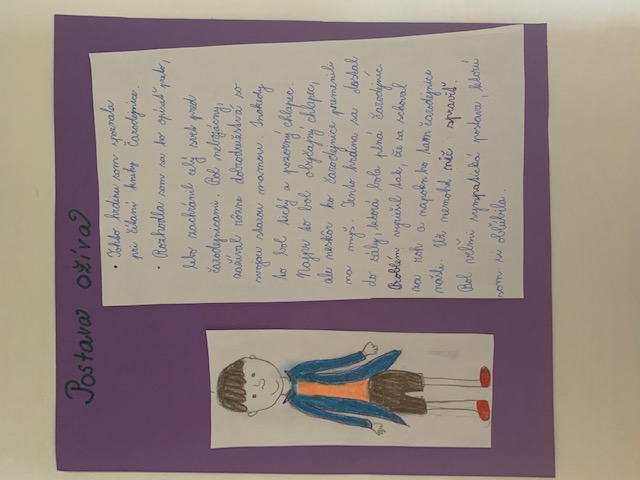 Postava ožíva
• Tohto hrdinu som spoznala
pri čítaní knihy Čarodejnice.
• Rozhodla som sa ho opísať preto,
lebo zachránil celý svet pred
čarodejnicami. Bol nebojácny,
zažíval rôzne dobrodružstvá so
svojou starou mamou. Inokedy
to bol tichý a pozorný chlapec.
Najprv to bol obyčajný chlapec,
ale neskôr ho čarodejnice premenili
na myš. Tento hrdina sa dostal
do sály, ktorá bola plná čarodejníc.
Problém vyriešil tak, že sa schoval
za roh a napokon ho tam čarodejnice
našli. Už nemohol nič spraviť.
Bol veľmi sympatická postava, ktorú
som si obľúbila.